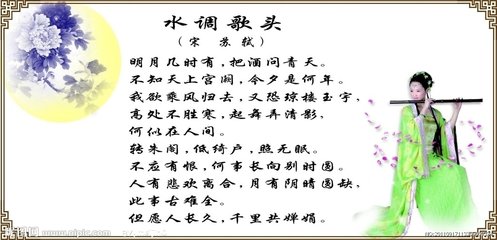 水调歌头
（宋 苏轼）
明月几时有，把酒问青天。
不知天上宫阙，今夕是何年。
我欲乘风归去，又恐琼楼玉宇，
高处不胜寒，起舞弄清影，
何似在人间。
转朱阁，低绮户，照无眠。
不应有恨，何事长向别时圆。
人有悲欢离合，月有阴晴圆缺，
此事古难全。
但愿人长久，千里共婵娟。
www.nipic.com